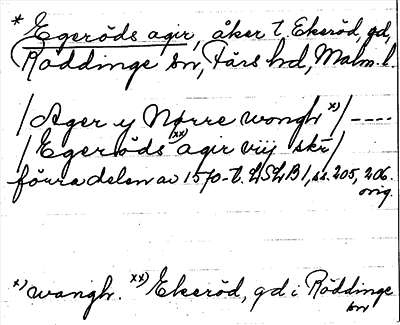 * Egeröds agir, åker t. Ekeröd, gd,
Röddinge sn, Färs hd, Malm. l.
/ Ager y Nørre wongh x) / ----
/ Egerøds xx) agir vij skr /
förra delen av 1570-t. LSLB 1, ss. 205, 206.
orig.
x) wangh. xx) Ekeröd, gd i Röddinge
sn